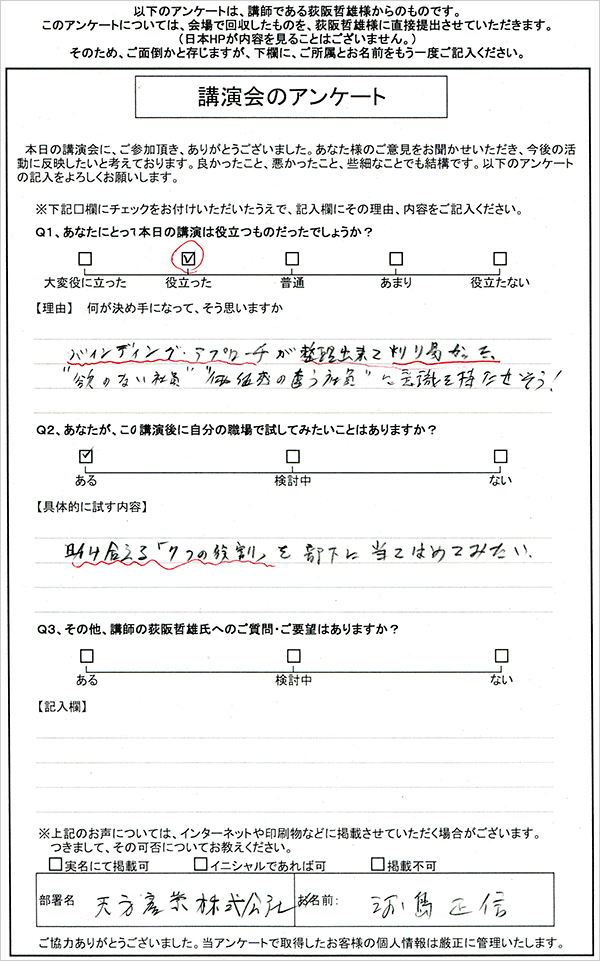 以下のアンケートは、講師である荻阪哲雄様からのものです。
このアンケートについては、会場で回収したものを、荻阪哲雄様に直接提出させていただきます。
（日本HPが内容を見ることはございません。）
そのため、ご面倒かと存じますが、下欄に、ご所属とお名前をもう一度ご記入ください。
講演会のアンケート
本日の講演会に、ご参加頂き、ありがとうございました。あなた様のご意見をお聞かせいただき、今後の活
動に反映したいと考えております。良かったこと、悪かったこと、些細なことでも結構です。以下のアンケート
の記入をよろしくお願いします。
※下記口欄にチェックをお付けいただいたうえで、記入欄にその理由、内容をご記入ください。
Q1、あなたにとって本日の講演は役立つものだったでしょうか？
大変役に立った 役立った 普通 あまり 役立たない
【理由】 何が決め手になって、そう思いますか
バインディング・アプローチが整理出来て判り易かった。
"欲のない社員" "価値感の違う社員" に意識を持たせそう！
Q2、あなたが、この講演後に自分の職場で試してみたいことはありますか？
ある 検討中 ない
【具体的に試す内容】
助け合える「7つの役割」を部下に当てはめてみたい。
Q3、その他、講師の荻阪哲雄氏へのご質問・ご要望はありますか？
ある 検討中 ない
【記入欄】
※上記のお声については、インターネットや印刷物などに掲載させていただく場合がございます。
つきまして、その可否についてお教えください。
実名にて掲載可 イニシャルであれば可 掲載不可
部署名 天方産業株式会社 お名前： 河島正信
ご協力ありがとうございました。当アンケートで取得したお客様の個人情報は厳正に管理いたします。